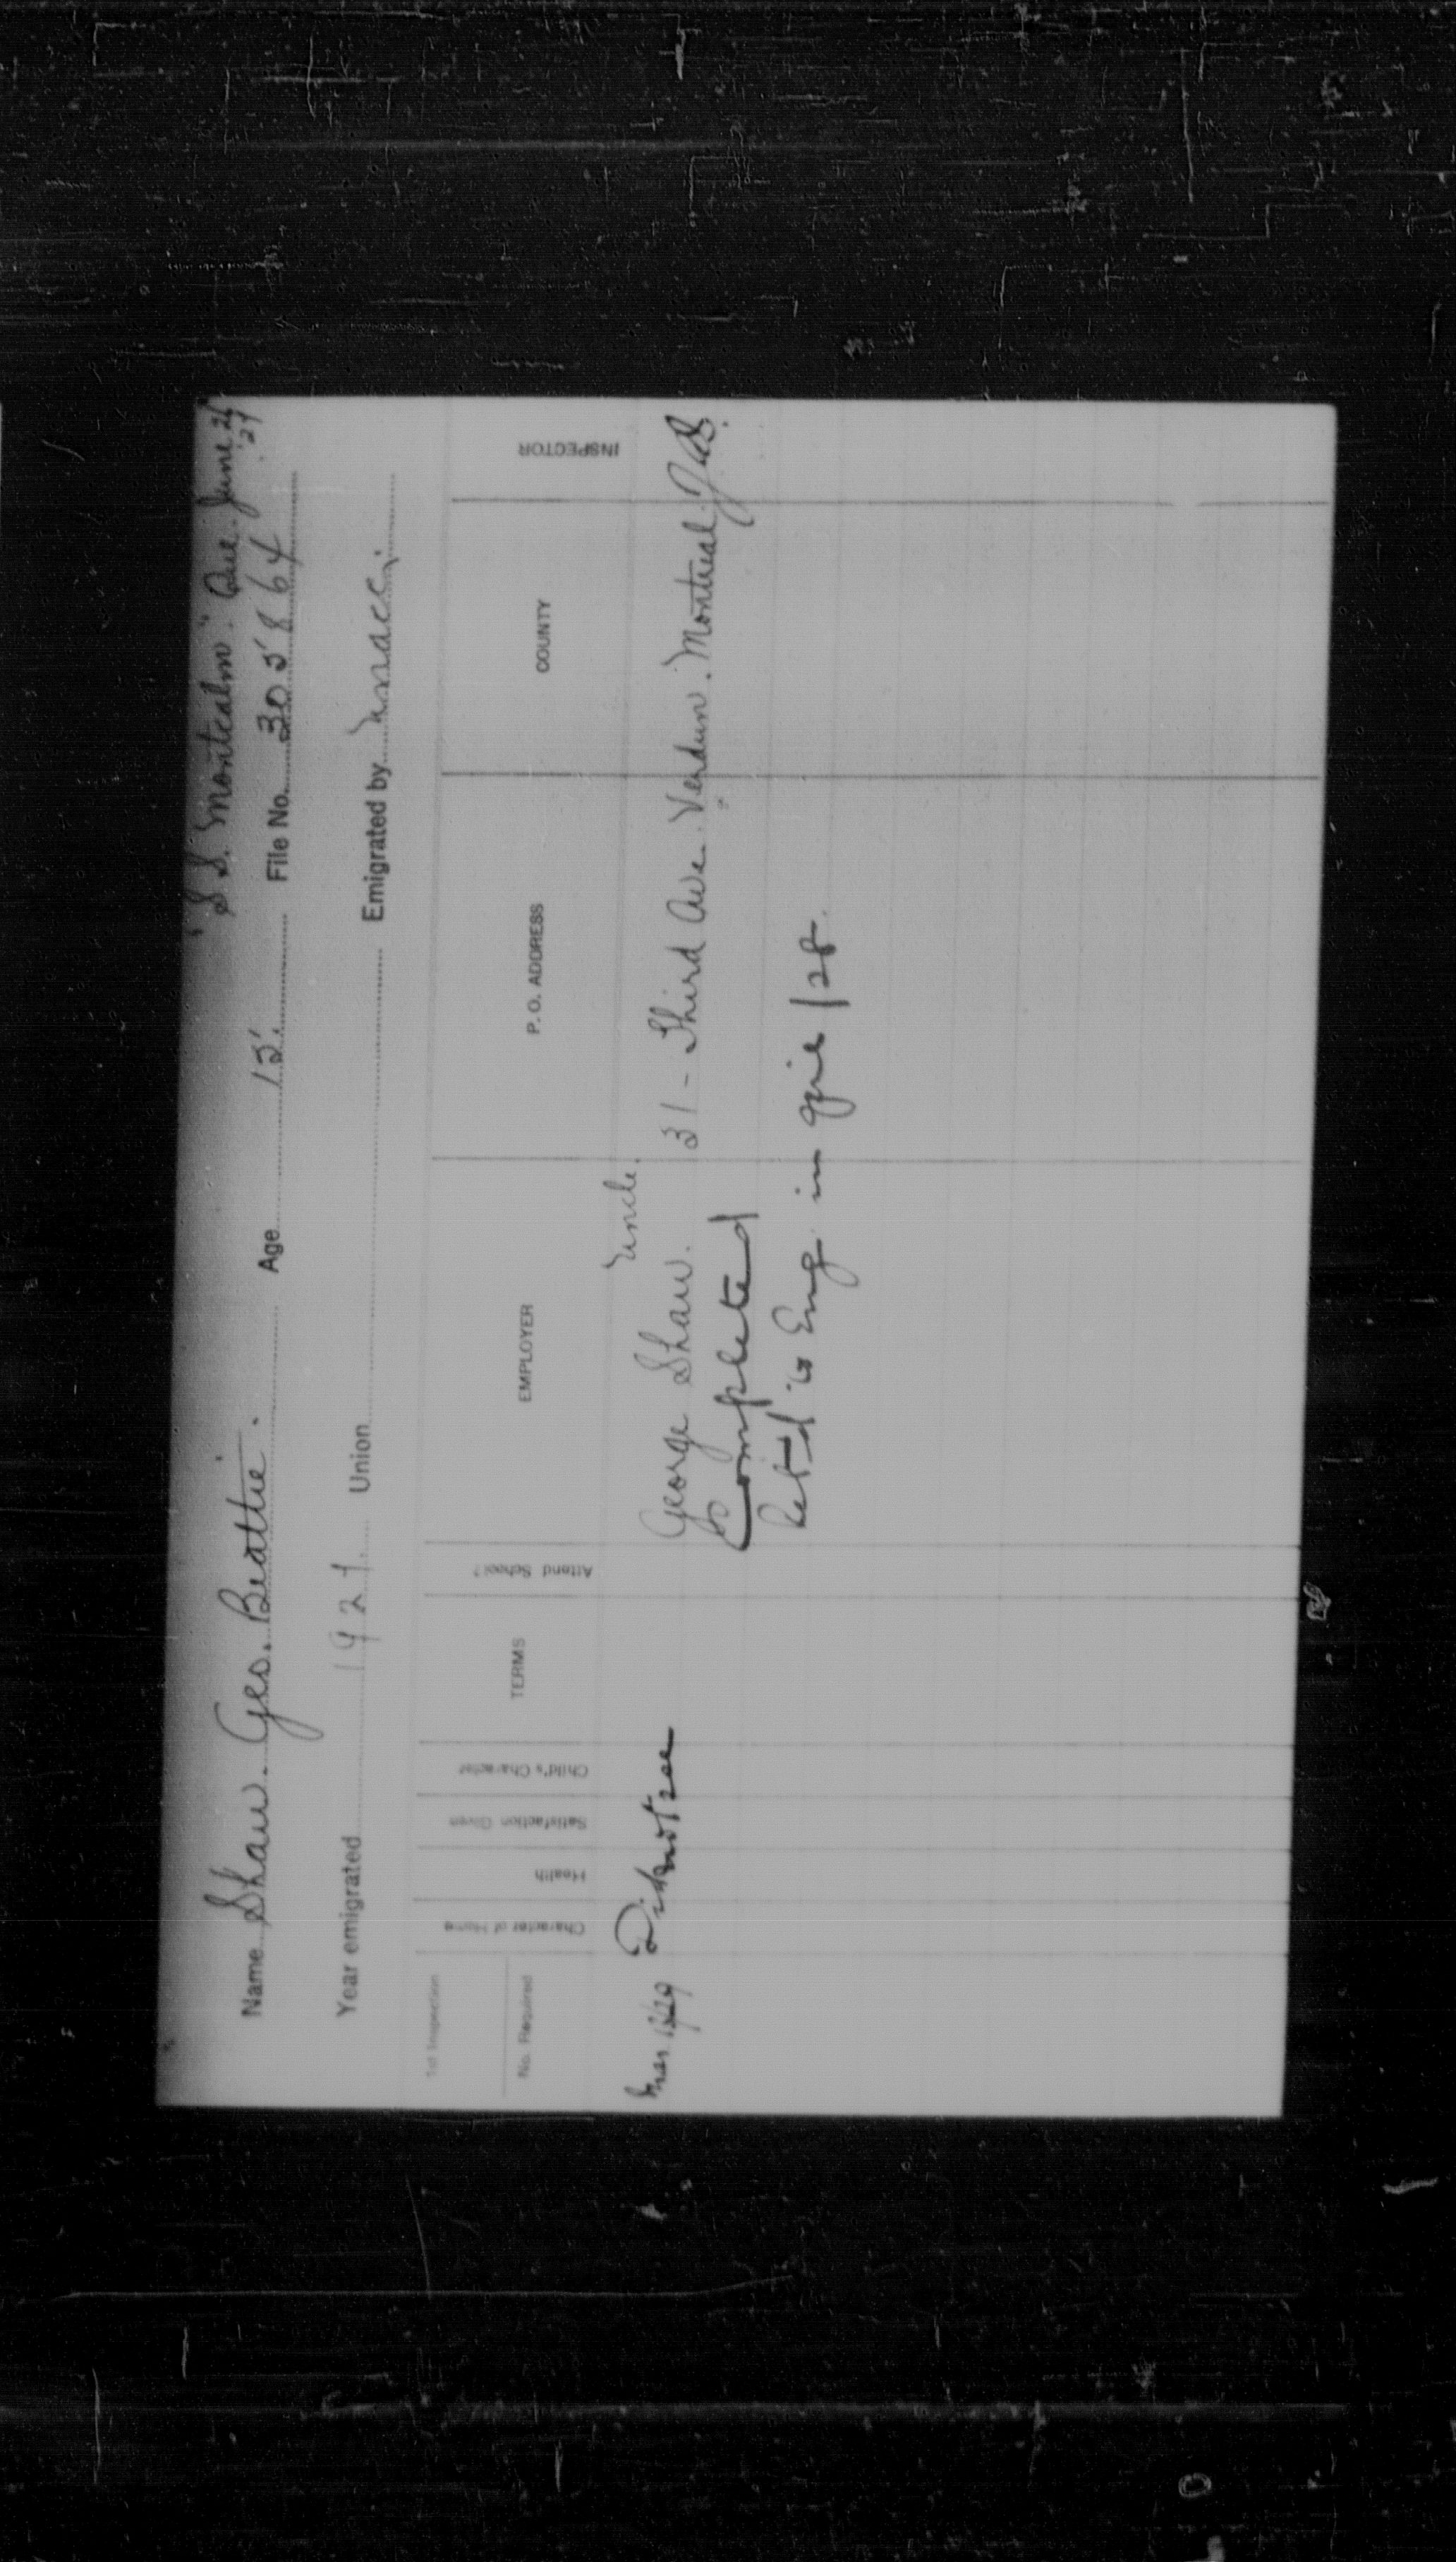 "S.S. Montcalm". Que. June 26 '27
Name Shaw. Geo. Beattie. Age 15. File No. 305864
Year emigrated 1927. Union Emigrated by
1st Inspection
No. Required
Character of Home Health Satisfaction Given Child's Character TERMS Attend School? EMPLOYER P. O. ADDRESS COUNTY INSPECTOR
Uncle.
Did not see George Shaw. 31 - Third Ave. Verdun. Montreal.
Completed
Ret'd to Eng. in /28.